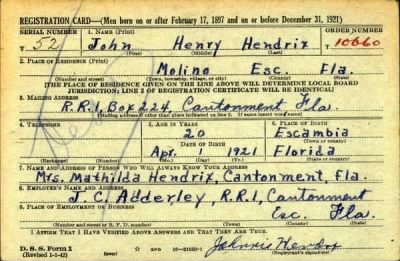 REGISTRATION CARD—(Men born on or after February 17, 1897 and on or before December 31, 1921)
SERIAL NUMBER 1. NAME (Print) ORDER NUMBER
T 52 John Henry Hendrix 10660
(First) (Middle) (Last)
2. PLACE OF RESIDENCE (Print)
Molino Esc. Fla.
(Number and street) (Town, township, village, or city) (County) (State)
[THE PLACE OF RESIDENCE GIVEN ON THE LINE ABOVE WILL DETERMINE LOCAL BOARD
JURISDICTION; LINE 2 OF REGISTRATION CERTIFICATE WILL BE IDENTICAL]
3. MAILING ADDRESS
R.R.1, Box 224, Cantonment Fla.
[Mailing address if other than place indicated on line 2. If same insert word same]
4. TELEPHONE 5. AGE IN YEARS 6. PLACE OF BIRTH
20 Escambia
DATE OF BIRTH (Town or county)
Apr. 1 1921 Florida
(Exchange) (Number) (Mo.) (Day) (Yr.) (State or country)
7. NAME AND ADDRESS OF PERSON WHO WILL ALWAYS KNOW YOUR ADDRESS
Mrs. Mathilda Hendrix, Cantonment, Fla.
8. EMPLOYER'S NAME AND ADDRESS
J. C. Adderley, R.R.1, Cantonment
9. PLACE OF EMPLOYMENT OR BUSINESS
Esc. Fla.
(Number and street or R. F. D. number) (Town) (County) (State)
I AFFIRM THAT I HAVE VERIFIED ABOVE ANSWERS AND THAT THEY ARE TRUE.
D. S. S. Form 1
(Revised 1-1-42) GPO 16—21630-1
Johnnie Hendrix
(Registrant's signature)